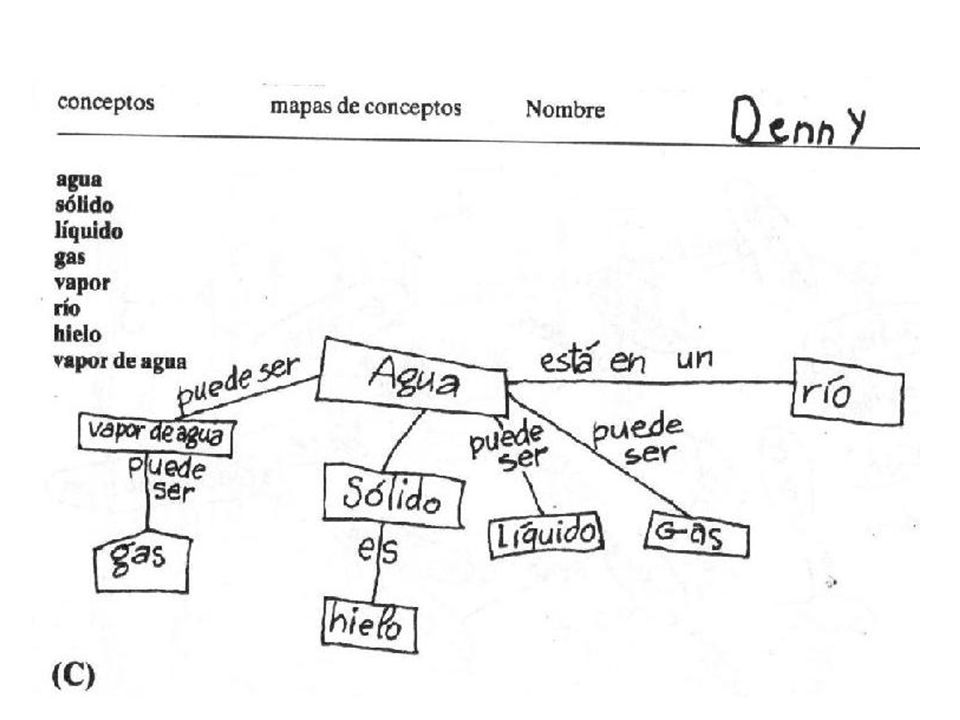 conceptos mapas de conceptos Nombre Denny
agua
sólido
líquido
gas
vapor
río
hielo
vapor de agua
puede ser
Agua
está en un
río
vapor de agua
puede
ser
gas
Sólido
es
hielo
puede
ser
Líquido
puede
ser
Gas
(C)